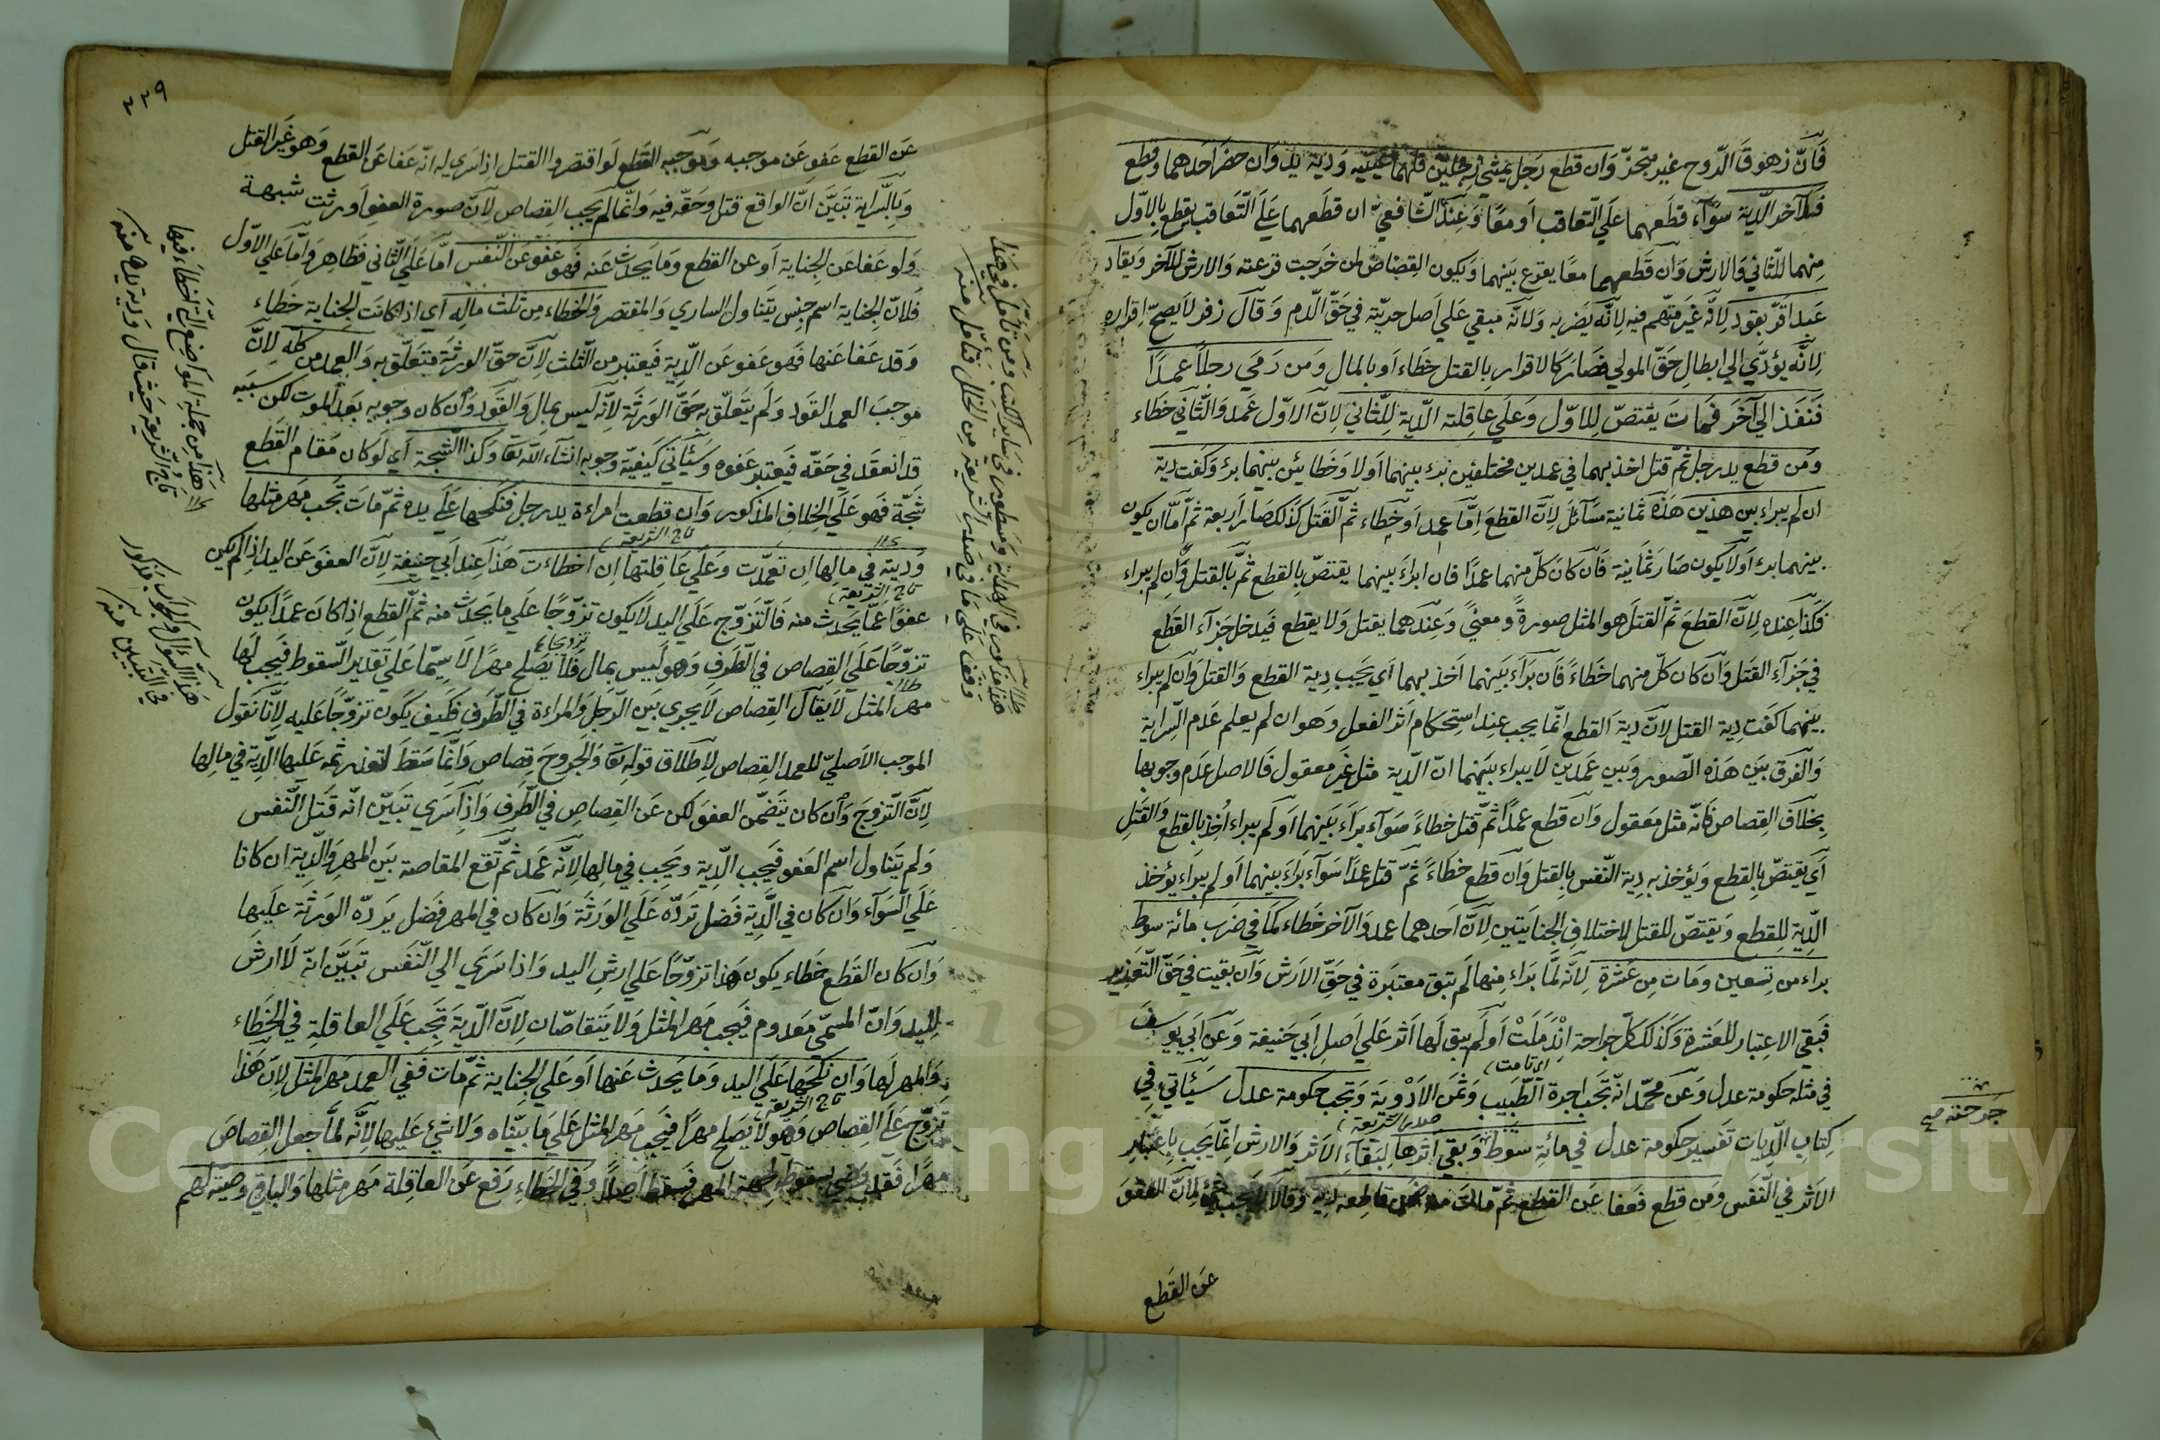 فان زهوق الروح غير متجز وان قطع رجل يميني رجلين فلهما يمينه ودية يد وان حضر احدهما وقطع
فللآخر الدية سواء قطعهما على التعاقب او معا وعند الشافعي ان قطعهما على التعاقب يقطع بالاول
منهما للثاني والارش وان قطعهما معا يقرع بينهما ويكون القصاص لمن خرجت قرعته والارش للآخر ويقاد
عبد اقر بقود لانه غير متهم فيه لانه يضر به ولانه مبقي على اصل حرية في حق الدم وقال زفر لا يصح اقراره
لانه يؤدي الى ابطال حق المولي فصار كالاقرار بالقتل خطاء او بالمال ومن رمي رجلا عمدا
فنفذ الي آخر فمات يقتص للاول وعلي عاقلته الدية للثاني لان الاول عمد والثاني خطاء
ومن قطع يد رجل ثم قتل اخذ بهما في عمدين مختلفين برء بينهما اولا وخطائين بينهما برء وكفت دية
ان لم يبراء بين هذين هذه ثمانية مسائل لان القطع اما عمد او خطاء ثم القتل كذلك صار اربعة ثم اما ان يكون
بينهما برء اولا يكون صار ثمانية فان كان كل منهما عمدا فان براء بينهما يقتص بالقطع ثم بالقتل وان لم يبراء
فكذا عنده لان القطع ثم القتل هو المثل صورة ومعني وعندهما يقتل ولا يقطع فيدخل جزآء القطع
في جزآء القتل وان كان كل منهما خطاء فان براء بينهما اخذ بهما اي يجب دية القطع والقتل وان لم يبراء
بينهما كفت دية القتل لان دية القطع انما يجب عند استحكام اثر الفعل وهو ان لم يعلم عدم السراية
والفرق بين هذه الصور وبين عمدين لا يبراء بينهما ان الدية مثل غير معقول فالاصل عدم وجوبها
بخلاف القصاص فانه مثل معقول وان قطع عمدا ثم قتل خطاء سوآء براء بينهما او لم يبراء اخذ بالقطع والقتل
اي يقتص بالقطع ويؤخذ به دية النفس بالقتل وان قطع خطاء ثم قتل عمدا سوآء براء بينهما او لم يبراء يؤخذ
الدية للقطع ويقتص للقتل لاختلاف الجنايتين لان احدهما عمد والآخر خطاء كما في ضرب مائة سوط
براء من تسعين ومات من عشرة لانه لما براء منها لم تبق معتبرة في حق الارش وان بقيت في حق التعزير
فبقي الاعتبار للعشرة وكذلك كل جراحة اندملت او لم يبق لها اثر علي اصل ابي حنيفة وعن ابي يوسف
في مثله حكومة عدل وعن محمد انه تجب اجرة الطبيب وثمن الادوية وتجب حكومة عدل سيئاتي في
كتاب الديات تفسير حكومة عدل في مائة سوط وبقي اثرها لبقآء الاثر والارش انما يجب باعتبار
الاثر في النفس ومن قطع فعفا عن القطع ثم مات منه ضمن قاطعه ديته وقالا لا يجب شئ لان العفو
عن القطع
جرحته صح
صدر الشريعة
٣٣٩
عن القطع عفو عن موجبه وموجبه القطع لو اقتصر والقتل اذا سري له انه عفا عن القطع وهو غير القتل
وبالسراية تبين ان الواقع قتل وحقه فيه وانما لم يجب القصاص لان صورة العفو اورثت شبهة
ولو عفا عن الجناية او عن القطع وما يحدث عنه فهو عفو عن النفس اما علي الثاني فظاهر واما علي الاول
فلان الجناية اسم جنس يتناول الساري والمقتصر والخطاء من ثلث ماله اي اذا كانت الجناية خطاء
وقد عفا عنها فهو عفو عن الدية فيعتبر من الثلث لان حق الورثة متعلق به والعمد من كله لان
موجب العمد القود ولم يتعلق به حق الورثة لانه ليس بمال والقود وان كان وجوبه بعد الموت لكن سببه
قد انعقد في حقه فيعتبر عفوه وسيئاتي كيفية وجوبه انشاء الله تعا وكذا الشجة اي لو كان مقام القطع
شجة فهو علي الخلاف المذكور وان قطعت امراءة يد رجل فنكحها علي يده ثم مات تجب مهر مثلها
ودية في مالها ان تعمدت وعلي عاقلتها ان اخطاءت هذا عند ابي حنيفة لان العفو عن اليد اذا لم يكن
عفوا عما يحدث منه فالتزوج علي اليد لا يكون تزوجا علي ما يحدث منه ثم القطع اذا كان عمدا يكون
تزوجا علي القصاص في الطرف وهو ليس بمال فلا يصلح مهرا لا سيما علي تقدير السقوط فيجب لها
مهر المثل لا يقال القصاص لا يجري بين الرجل والمراءة في الطرف فكيف يكون تزوجا عليه لانا نقول
الموجب الاصلي للعمد القصاص لاطلاق قوله تعا والجروح قصاص وانما سقط لتعذر ثم عليها الدية في مالها
لان التزوج وان كان يتضمن العفو لكن عن القصاص في الطرف واذا سري تبين انه قتل النفس
ولم يتناول اسم العفو فيجب الدية ويجب في مالها لانه عمد ثم تقع المقاصة بين المهر والدية ان كانا
علي السواء وان كان في الدية فضل ترده علي الورثة وان كان في المهر فضل يرده الورثة عليها
وان كان القطع خطاء يكون هذا تزوجا علي ارش اليد واذا سري الي النفس تبين انه لا ارش
لليد وان المسمي معدوم فيجب مهر المثل ولا يتقاصان لان الدية تجب علي العاقلة في الخطاء
والمهر لها وان نكحها علي اليد وما يحدث عنها او علي الجناية ثم مات ففي العمد مهر المثل لان هذا
تزوج علي القصاص وهو لا يصلح مهرا فيجب مهر المثل علي ما بيناه ولا شئ عليها لانه لما جعل القصاص
مهرا فقد رضي بسقوطه لجهة المهر فسقط اصلا وفي الخطاء رفع عن العاقلة مهر مثلها والباقي وصية لهم
تاج الشريعة
تاج الشريعة
تاج الشريعة
هذا من جملة المواضع التي اخطاء فيها
تاج الشريعة حيث قال ودية يده منه
هذا السؤال والجواب مذكور
في التبيين منه
Copyright © King Saud University